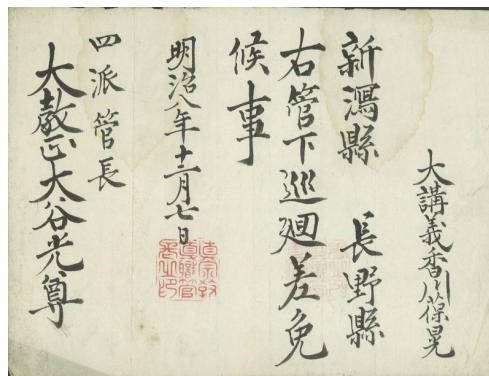 大講義香川葆晃
新潟縣　長野縣
右管下巡廻差免
候事
明治八年十二月七日
四派管長
大教正大谷光尊